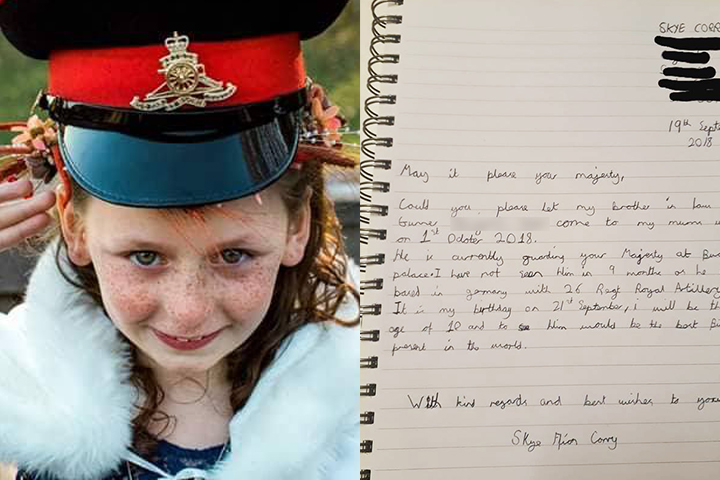 SKYE CORR
19th Sept
2018
May it please your majesty,
Could you please let my brother in law
Gunner come to my mums
on 1st October 2018.
He is currently guarding your Majesty at
palace. I have not seen him in 9 months as he
based in germany with 26 Regt Royal Artillery
It is my birthday on 21st September, i will be th
age of 10 and to see him would be the best Bi
present in the world.
With kind regards and best wishes to you
Skye Corry